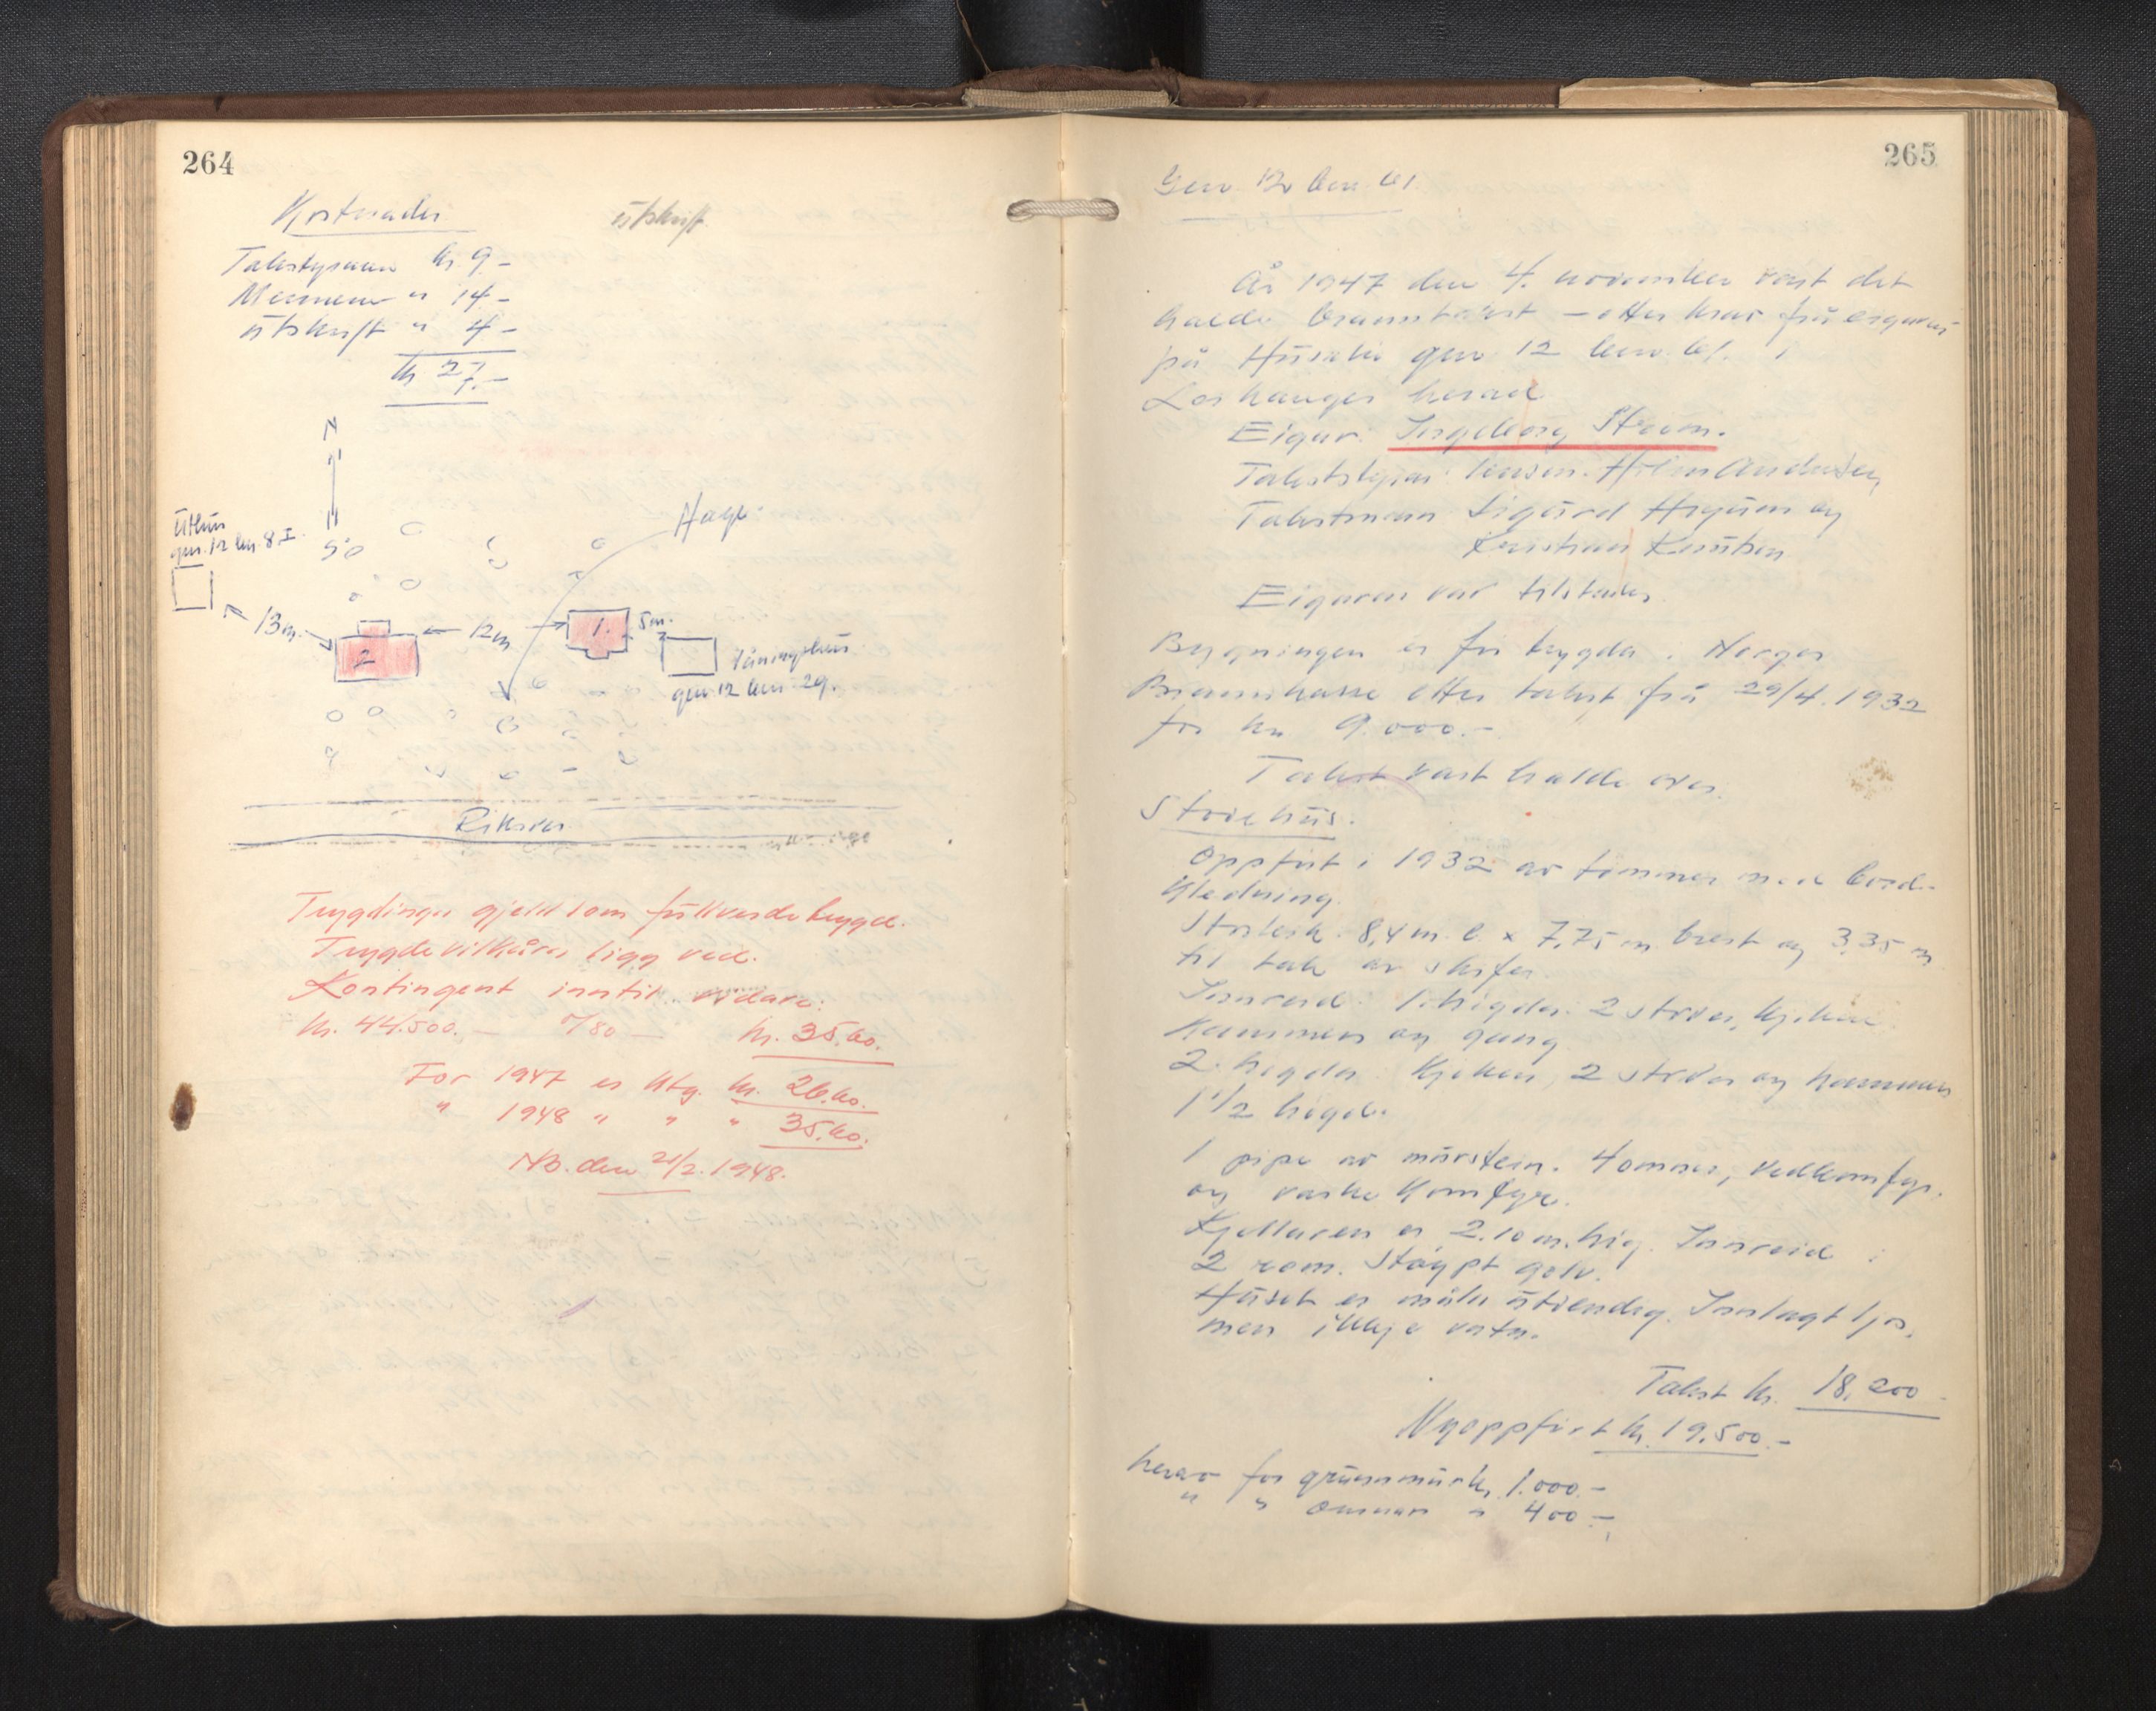 264
Kostnader
Takstysaren kr. 9-
Mennene " 14-
Utskrift " 4-
kr 27.-
utskrift
N
S
Hage.
Uthus
gnr. 12 bnr. 8 I.
13 m.
12 m
1.
5 m.
2
Våningshus
gnr. 12 bnr. 29.
Riksveg
Trygdinga gjeld som fullverde trygd.
Trygdevilkåra ligg ved.
Kontingent inntil vidare:
kr. 44.500.- kr. 35.60.
For 1947 er ktg. kr. 26.60.
" 1948 " " " 35.60.
No. den 21/2.1948.
265
Gnr. 12 bnr. 61.
År 1947 den 4. november vart det
halde branntakst - etter krav frå eigaren
på gnr. 12 bnr. 61. i
Leikanger herad.
Eigar: Ingeborg Strøm.
Takststyrar: lensm. Andersen,
Takstmenn Sigurd Husum og
Kristian Knutsen
Eigaren var tilstades.
Bygningen er før trygda i Norges
Brannkasse etter takst frå 29/4.1932
for kr. 9.000.-
Takst vart halde over.
Stovehus.
Oppført i 1932 av tømmer med bord-
kledning.
Storleik. 8,4 m. l. x 7,75 m breit og 3,35 m
til tak av skifer.
Innreid: 1. høgda: 2 stover, kjøken
kammers og gang
2. høgda: Kjøken, 2 stover og kammers
1 1/2 høgd.
1 pipe av murstein. 4 omnar, vedkomfyr.
og vaske komfyr.
Kjellaren er 2.10 m. høg. Innreid i
2 rom. Støypt golv.
Huset er måla utvendig. Innlagt ljos,
men ikkje vatn.
Takst kr. 18.200-
Nyoppført kr. 19.500.-
herav for grunnmur kr. 1.000.-
" " omnar " 400.-